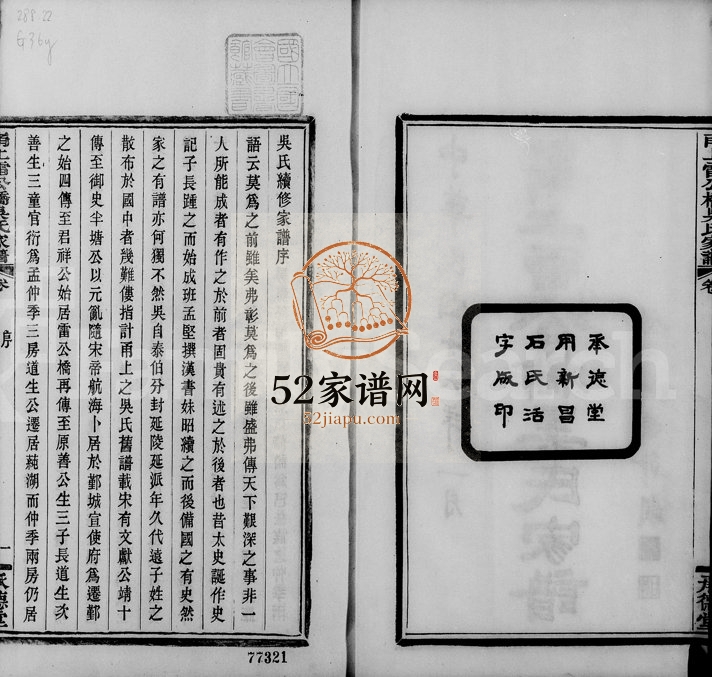 288.22
G36y
國立
會
館藏
承流堂
用新昌
石氏活
字版印
甬上雷公橋吳氏家譜
卷
承德堂
吳氏續修家譜序
語云莫爲之前雖美弗彰莫爲之後雖盛弗傳天下艱深之事非一
人所能成者有作之於前者固貴有述之於後者也昔太史誕作史
記子長踵之而始成班孟堅撰漢書妹昭續之而後備國之有史然
家之有譜亦何獨不然吳自泰伯分封延陵延派年久代遠子姓之
散布於國中者幾難僂指計甬上之吳氏舊譜載宋有文獻公靖十
傳至御史半塘公以元亂隨宋帝航海卜居於鄞城宣使府爲遷鄞
之始四傳至君祥公始居雷公橋再傳至原善公生三子長道生次
善生三童官衍爲孟仲季三房道生公遷居蒓湖而仲季兩房仍居
甬上雷公橋吳氏家譜
卷
序
一
承德堂
52家谱网
52jiapu.com
77321